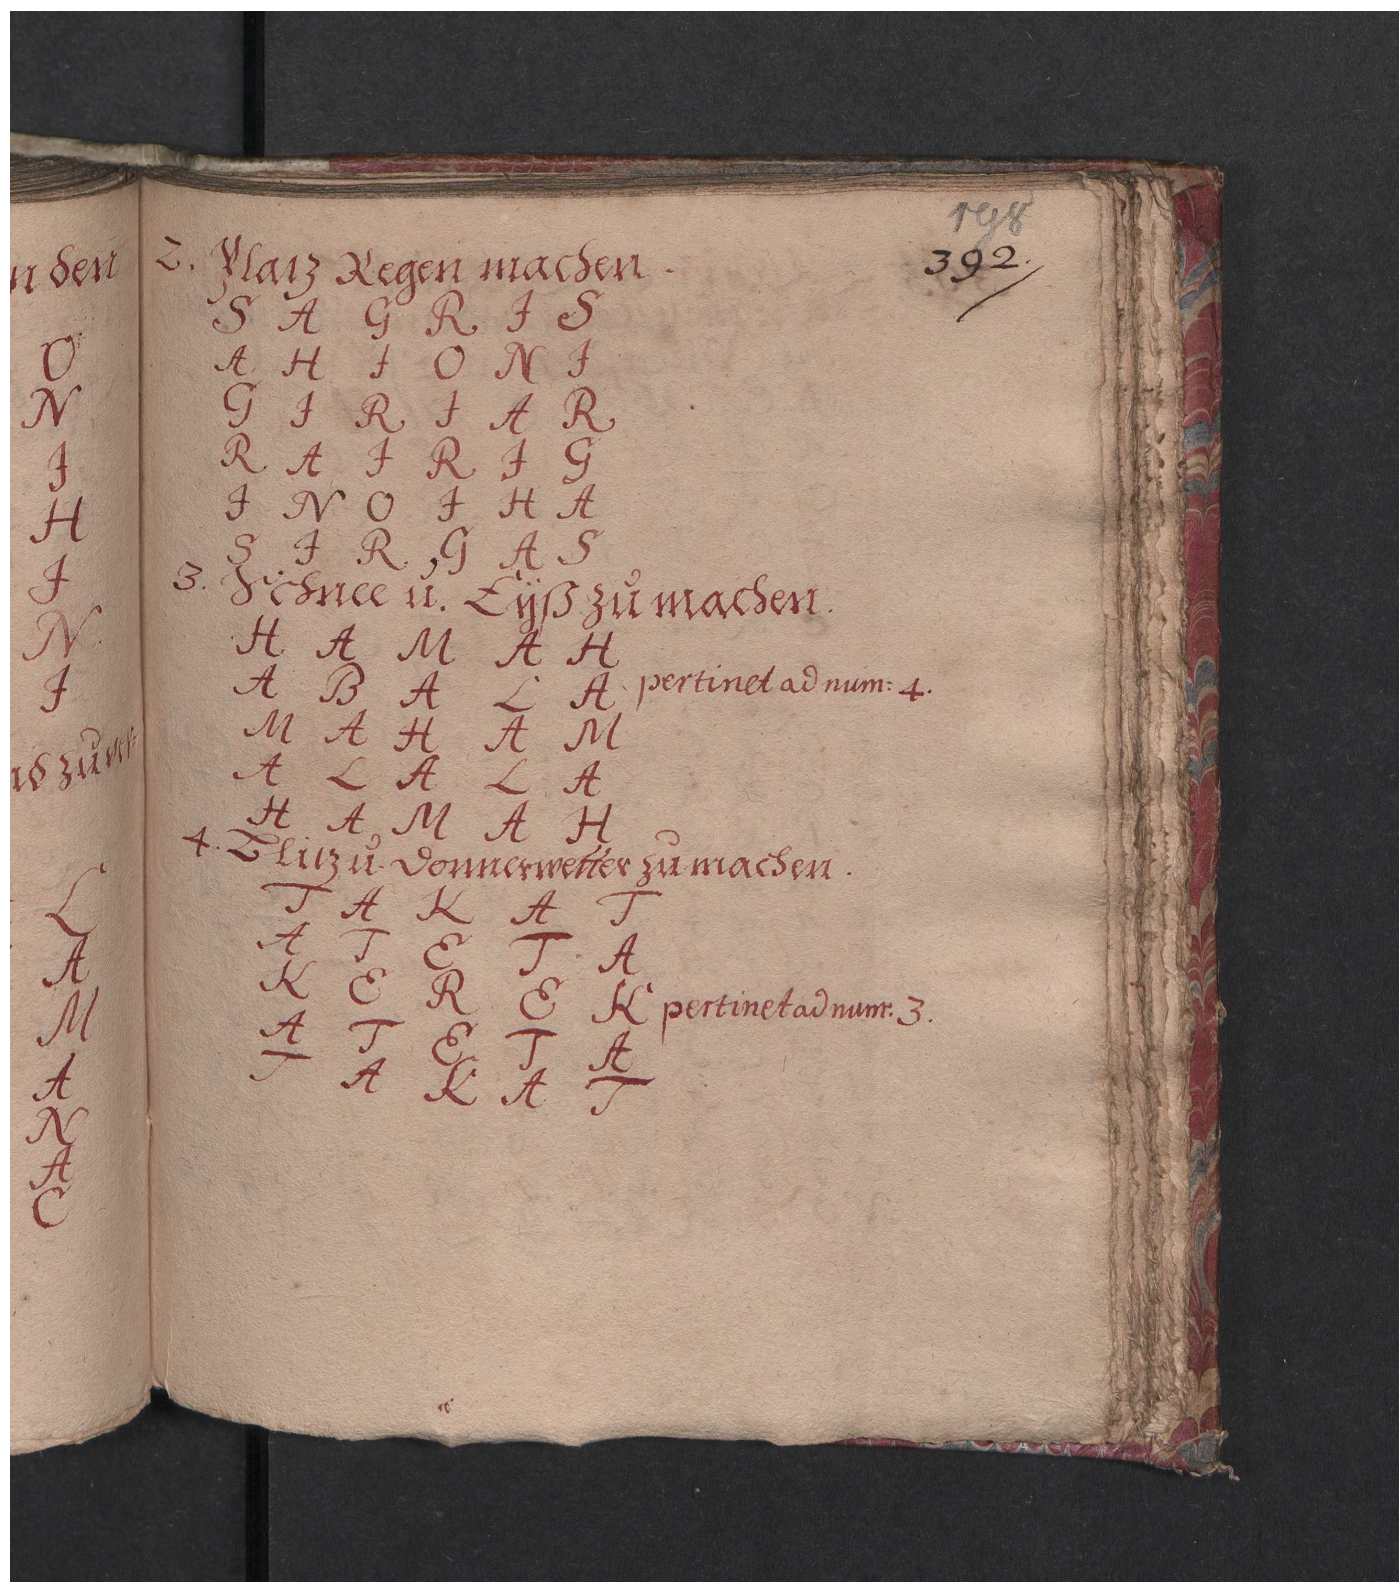 n den
O
N
I
H
I
N
I
L
A
M
A
N
A
C
198
392.
2. Platz Regen machen.
S A G R I S
A H I O N I
G I R I A R
R A I R I G
I N O I H A
S I R G A S
3. Schnee u. Eÿß zu machen.
H A M A H
A B A L A pertinet ad num: 4.
M A H A M
A L A L A
H A M A H
4. Blitz u. Donnerwetter zu machen.
T A K A T
A T E T A
K E R E K pertinet ad num: 3.
A T E T A
T A K A T